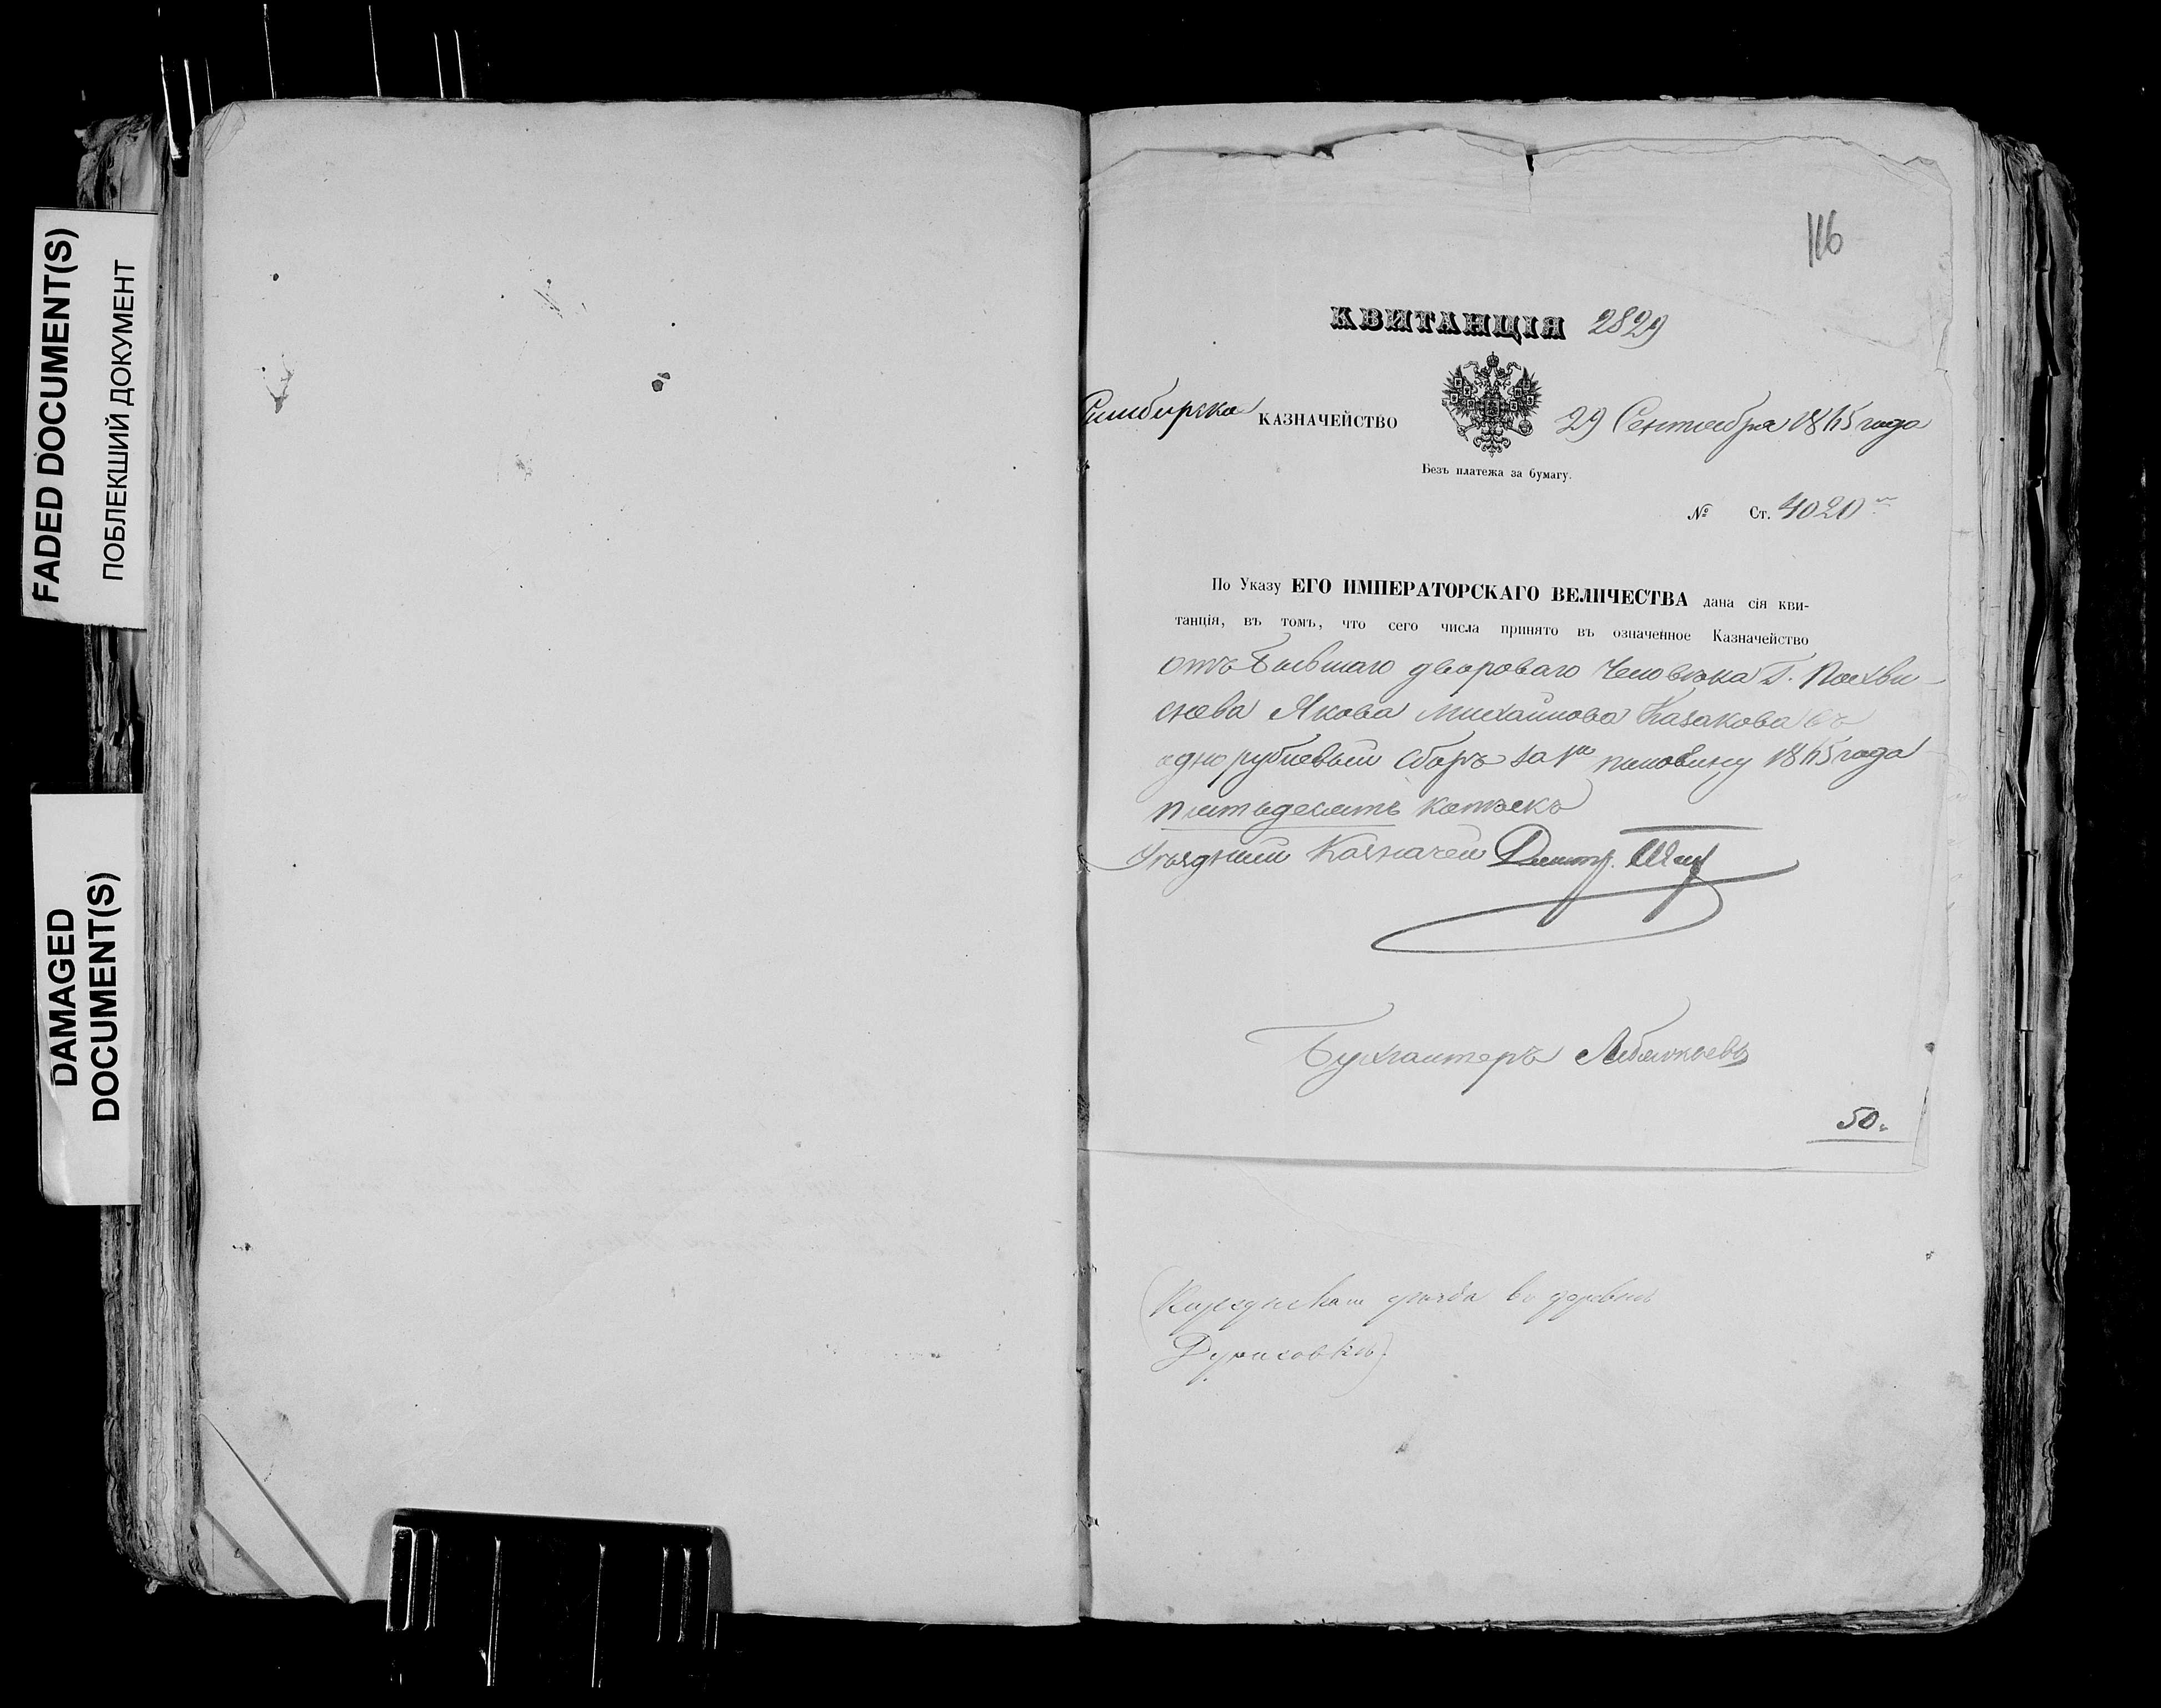 FADED DOCUMENT(S)
ПОБЛЕКШИЙ ДОКУМЕНТ
DAMAGED
DOCUMENT(S)
116
КВИТАНЦІЯ 2829
Симбирска КАЗНАЧЕЙСТВО 29 Сентября 1865 года
Безъ платежа за бумагу.
№ Ст. 4020
По Указу ЕГО ИМПЕРАТОРСКАГО ВЕЛИЧЕСТВА дана сія кви-
танція, въ томъ, что сего числа принято въ означенное Казначейство
отъ бывшаго двороваго человѣка Г. Похви-
снева Якова Михайлова Казакова въ
однорублевый сборъ за 1ю половину 1865 года
пятьдесятъ копѣекъ
Уѣздный Казначей Димитр.
Бухгалтеръ
50.
дѣревнѣ